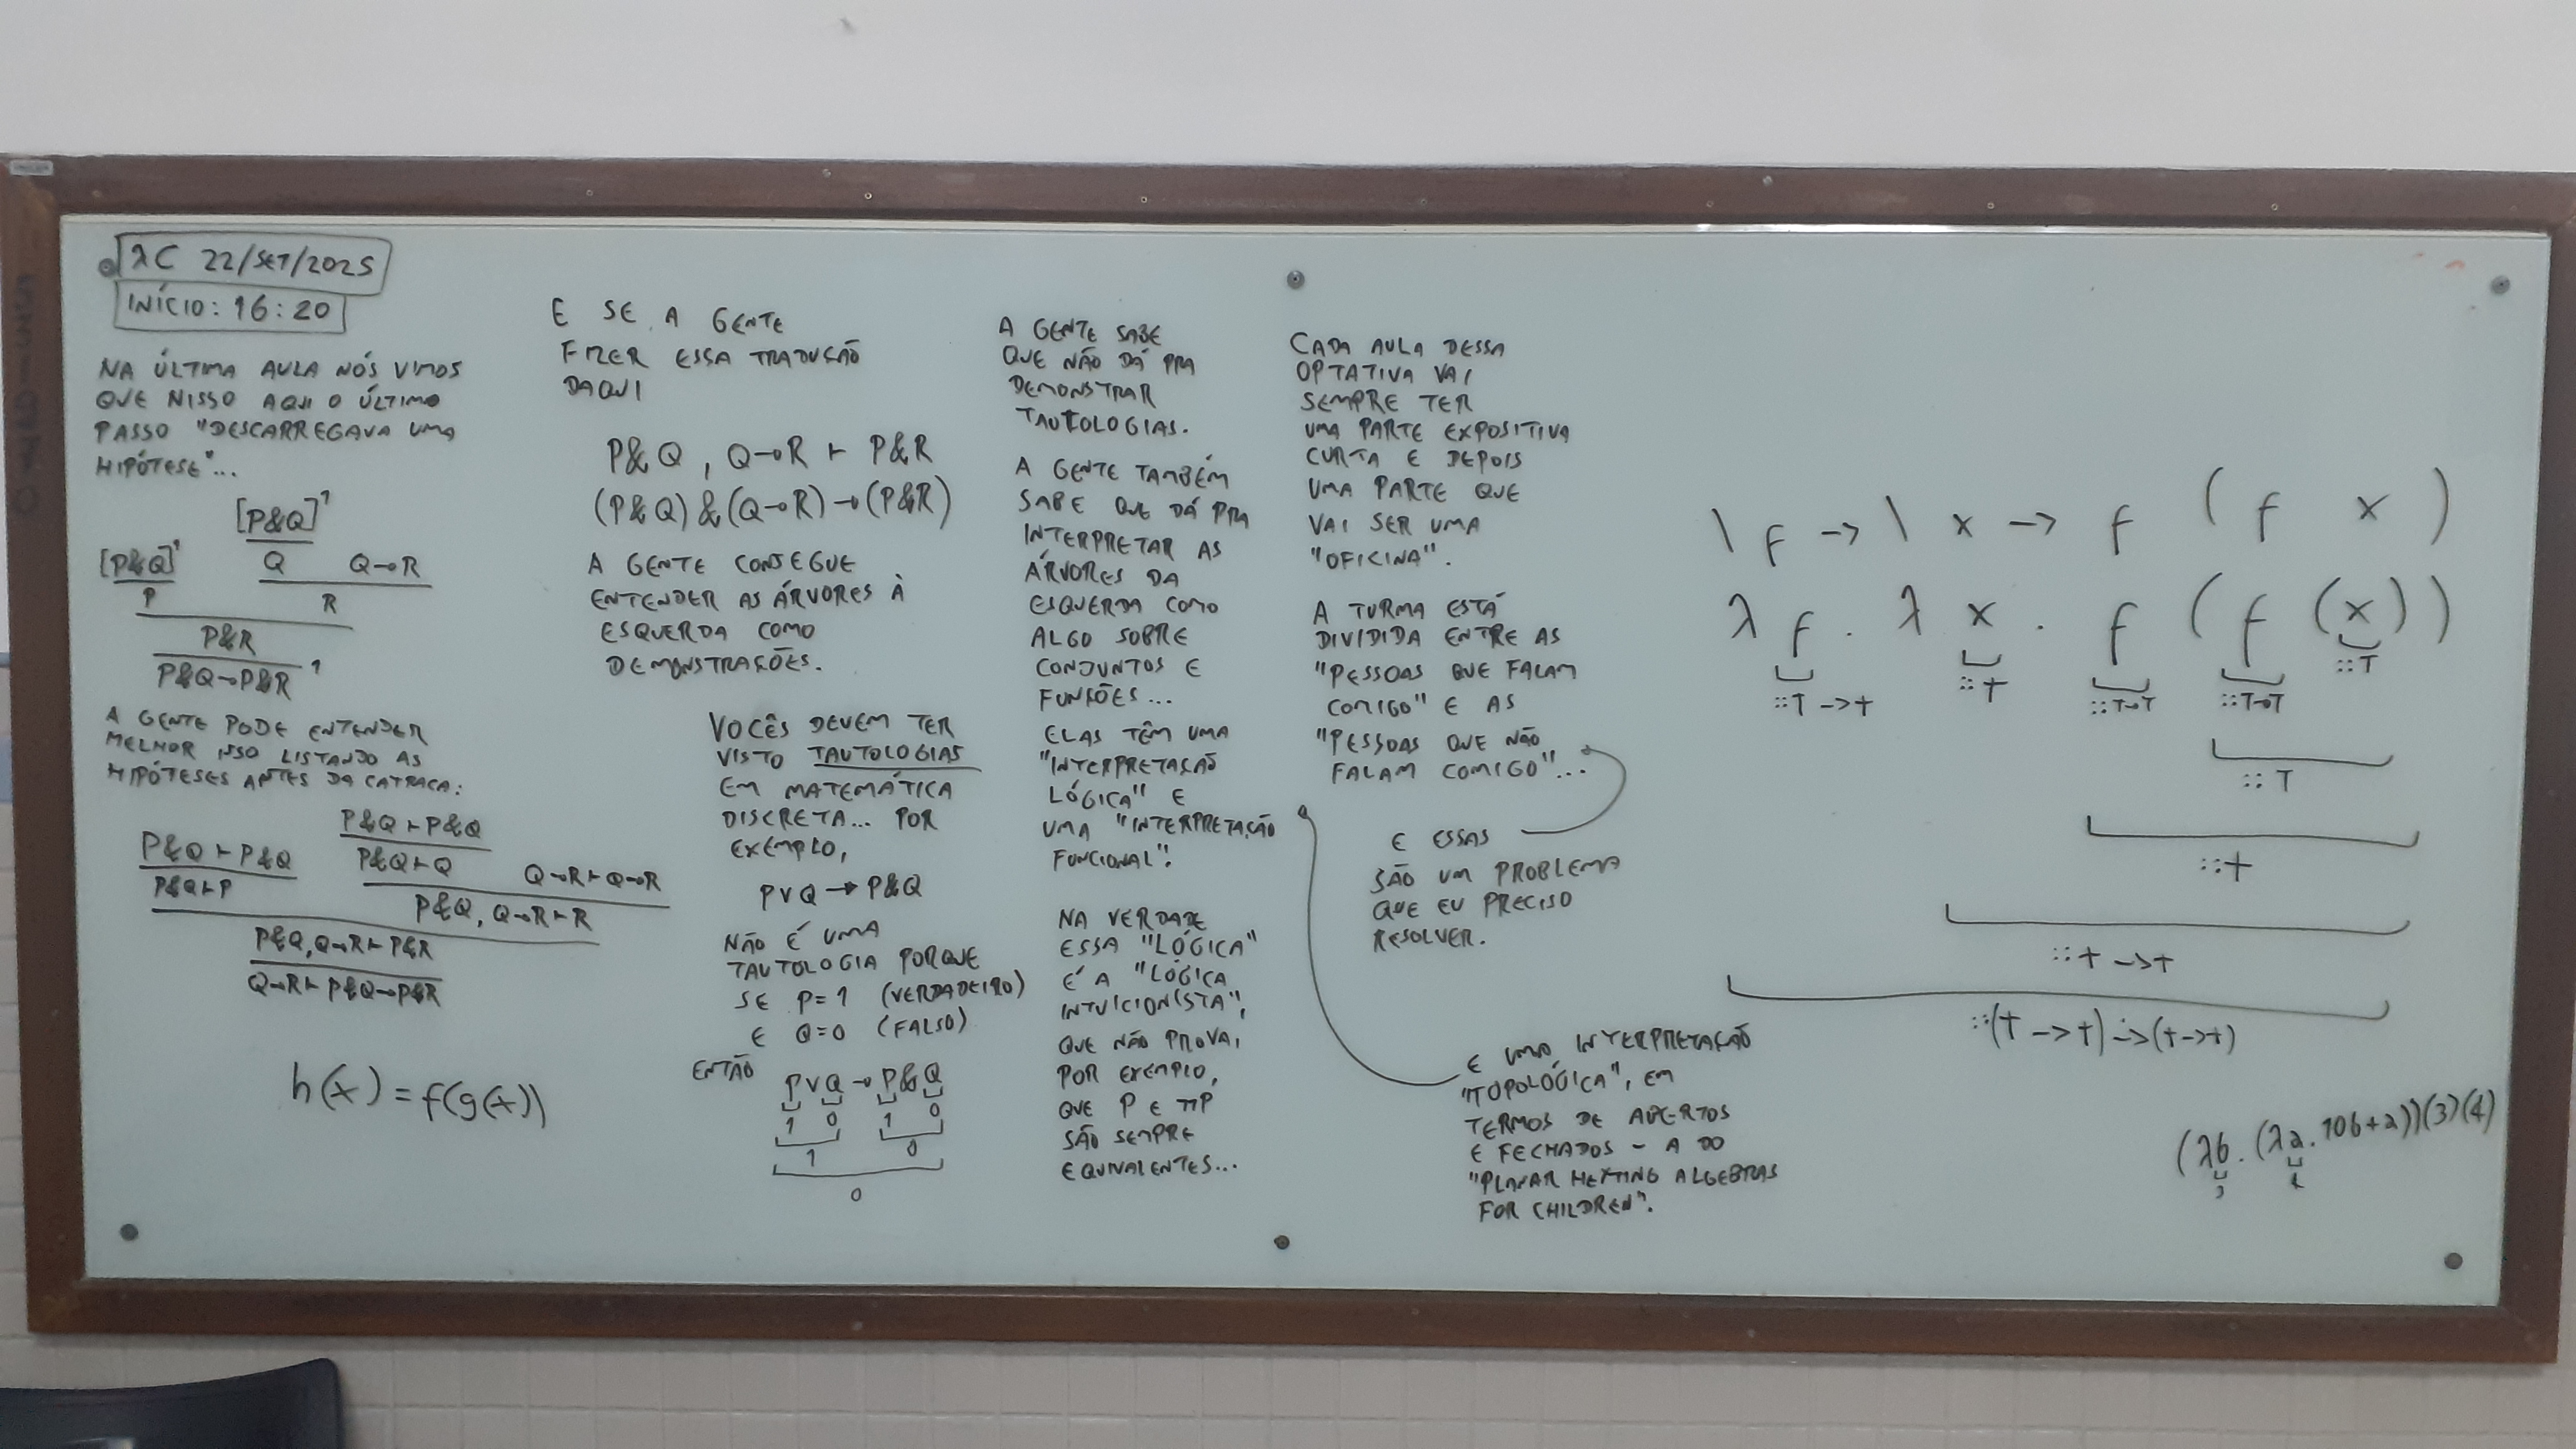 λC 22/SET/2025
INÍCIO: 16:20
NA ÚLTIMA AULA NÓS VIMOS
QUE NISSO AQUI O ÚLTIMO
PASSO "DESCARREGAVA UMA
HIPÓTESE"...
[P&Q]¹
[P&Q]¹ Q Q→R
P R
P&R
P&Q→P&R ¹
A GENTE PODE ENTENDER
MELHOR ISSO LISTANDO AS
HIPÓTESES ANTES DA CATRACA:
P&Q⊢P&Q
P&Q⊢P&Q P&Q⊢Q Q→R⊢Q→R
P&Q⊢P P&Q, Q→R⊢R
P&Q, Q→R⊢P&R
Q→R⊢P&Q→P&R
h(x) = f(g(x))
E SE A GENTE
FIZER ESSA TRADUÇÃO
DAQUI
P&Q, Q→R ⊢ P&R
(P&Q)&(Q→R)→(P&R)
A GENTE CONSEGUE
ENTENDER AS ÁRVORES À
ESQUERDA COMO
DEMONSTRAÇÕES.
VOCÊS DEVEM TER
VISTO TAUTOLOGIAS
EM MATEMÁTICA
DISCRETA... POR
EXEMPLO,
P∨Q → P&Q
NÃO É UMA
TAUTOLOGIA PORQUE
SE P=1 (VERDADEIRO)
E Q=0 (FALSO)
ENTÃO P∨Q→P&Q
1 0 1 0
1 0
0
A GENTE SABE
QUE NÃO DÁ PRA
DEMONSTRAR
TAUTOLOGIAS.
A GENTE TAMBÉM
SABE QUE DÁ PRA
INTERPRETAR AS
ÁRVORES DA
ESQUERDA COMO
ALGO SOBRE
CONJUNTOS E
FUNÇÕES...
ELAS TÊM UMA
"INTERPRETAÇÃO
LÓGICA" E
UMA "INTERPRETAÇÃO
FUNCIONAL".
NA VERDADE
ESSA "LÓGICA"
É A "LÓGICA
INTUICIONISTA",
QUE NÃO PROVA,
POR EXEMPLO,
QUE P E ¬¬P
SÃO SEMPRE
EQUIVALENTES...
CADA AULA DESSA
OPTATIVA VAI
SEMPRE TER
UMA PARTE EXPOSITIVA
CURTA E DEPOIS
UMA PARTE QUE
VAI SER UMA
"OFICINA".
A TURMA ESTÁ
DIVIDIDA ENTRE AS
"PESSOAS QUE FALAM
COMIGO" E AS
"PESSOAS QUE NÃO
FALAM COMIGO"...
E ESSAS
SÃO UM PROBLEMA
QUE EU PRECISO
RESOLVER.
E UMA INTERPRETAÇÃO
"TOPOLÓGICA", EM
TERMOS DE ABERTOS
E FECHADOS - A DO
"PLANAR HEYTING ALGEBRAS
FOR CHILDREN".
\ f -> \ x -> f ( f x )
λ f . λ x . f ( f ( x ) )
::T->T ::T ::T→T ::T→T ::T
::T
::T
::T->T
::(T->T)->(T->T)
(λb.(λa.10b+a))(3)(4)
3 4